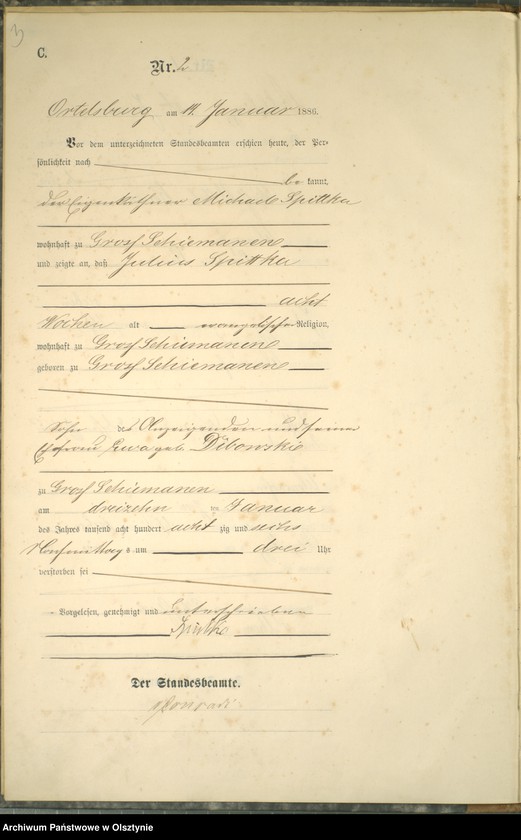 3
C.
Nr. 2
Ortelsburg am 14. Januar 1886.
Vor dem unterzeichneten Standesbeamten erschien heute, der Per-
sönlichkeit nach
be kannt,
der Eigenkäthner Michael Spittka
wohnhaft zu Gross Schiemanen
und zeigte an, daß Julius Spittka
acht
Wochen alt evangelischer Religion,
wohnhaft zu Gross Schiemanen
geboren zu Gross Schiemanen
Sohn des Anzeigenden und seiner
Ehefrau Ewa geb. Dibowski
zu Gross Schiemanen
am dreizehn ten Januar
des Jahres tausend acht hundert acht zig und sechs
Nachmittags um drei Uhr
verstorben sei
Vorgelesen, genehmigt und unterschrieben
Der Standesbeamte.
Archiwum Państwowe w Olsztynie